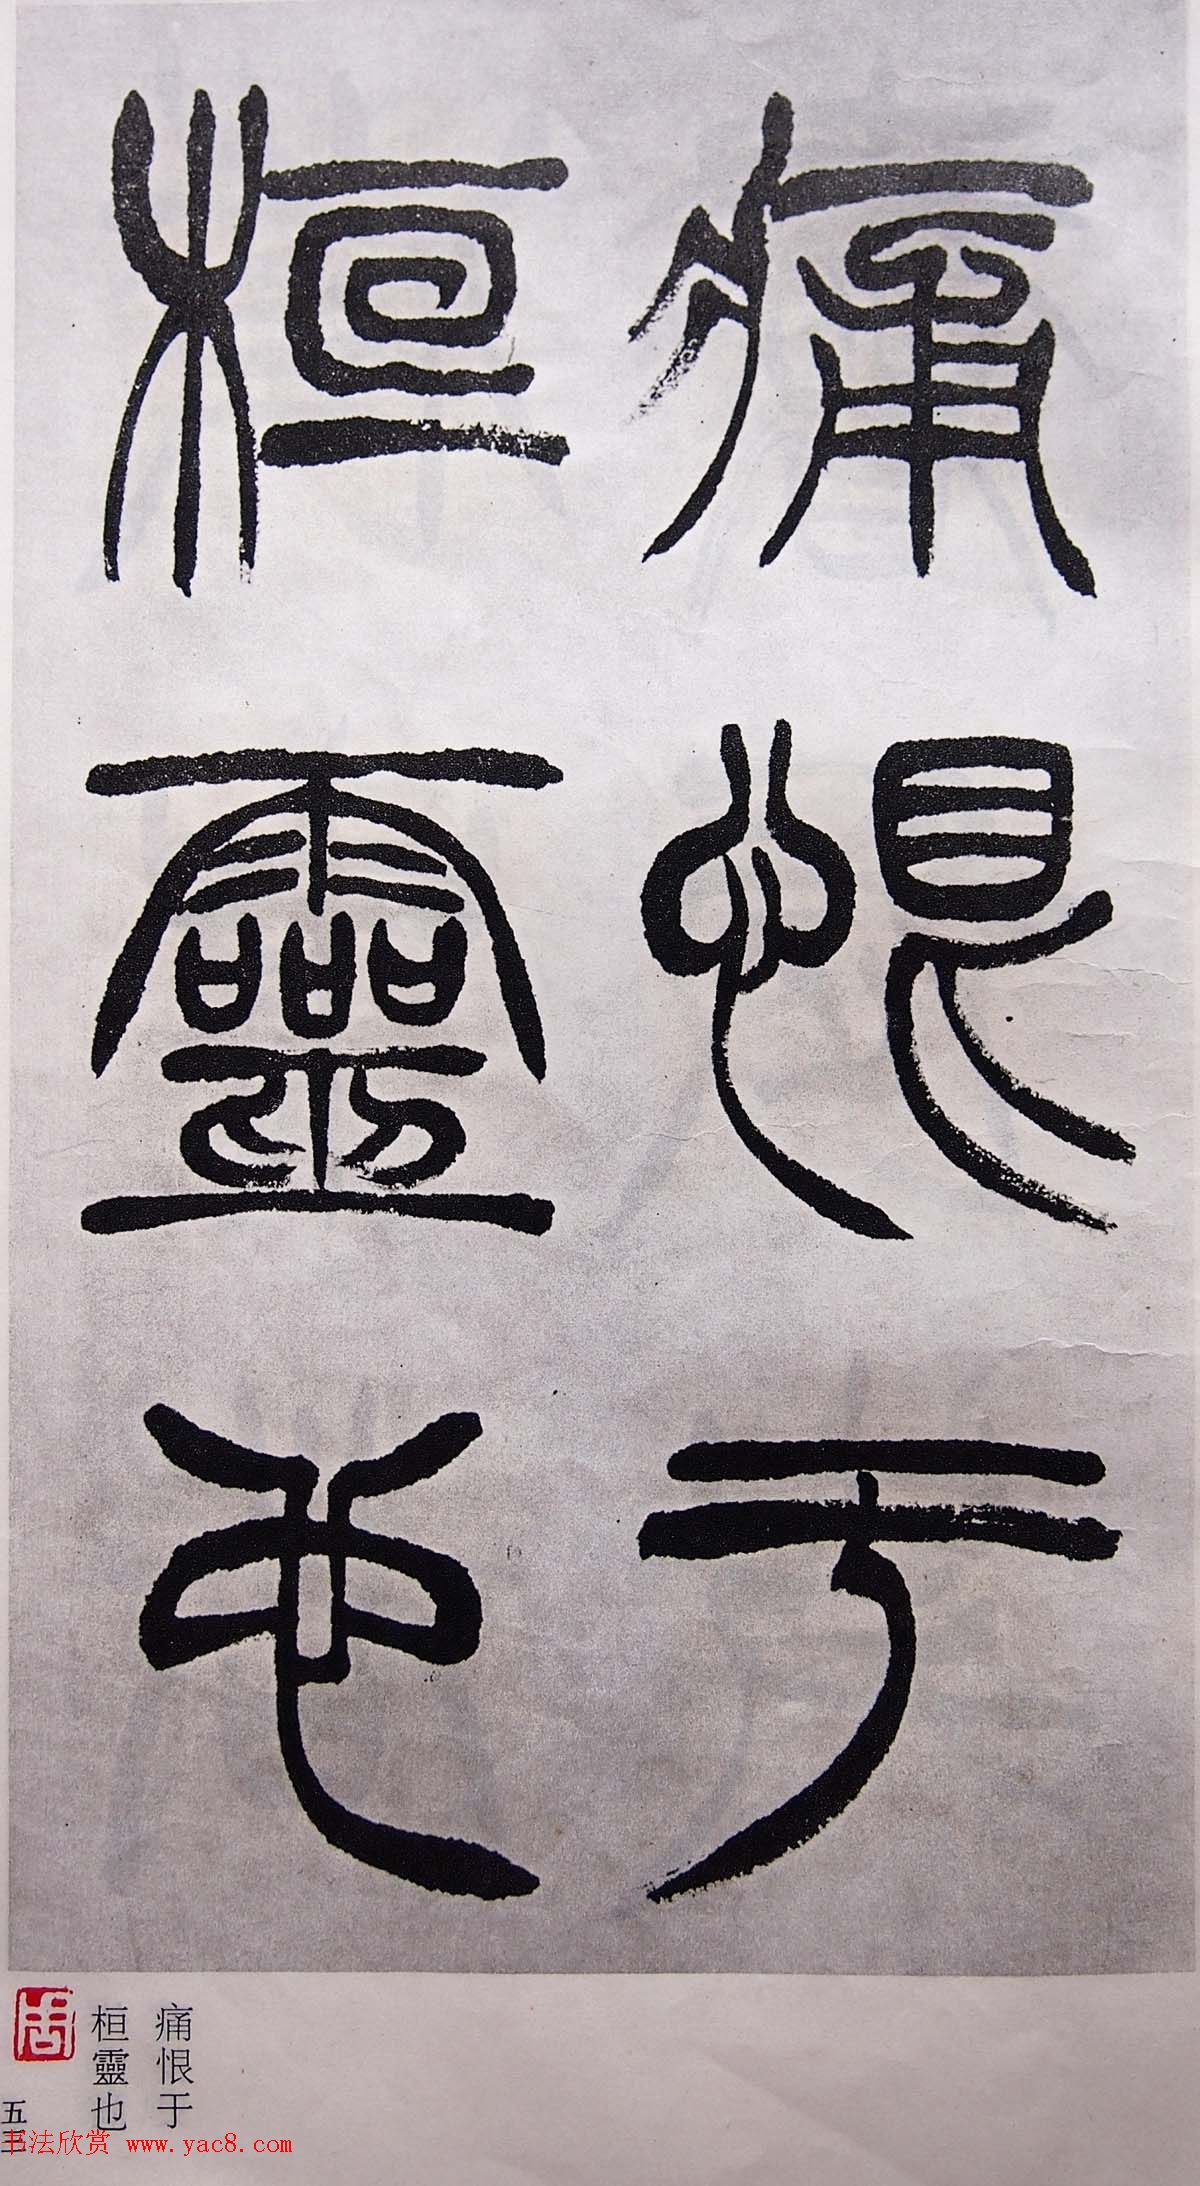 痛恨于
桓靈也
痛恨于
桓靈也
周
书法欣赏 www.yac8.com